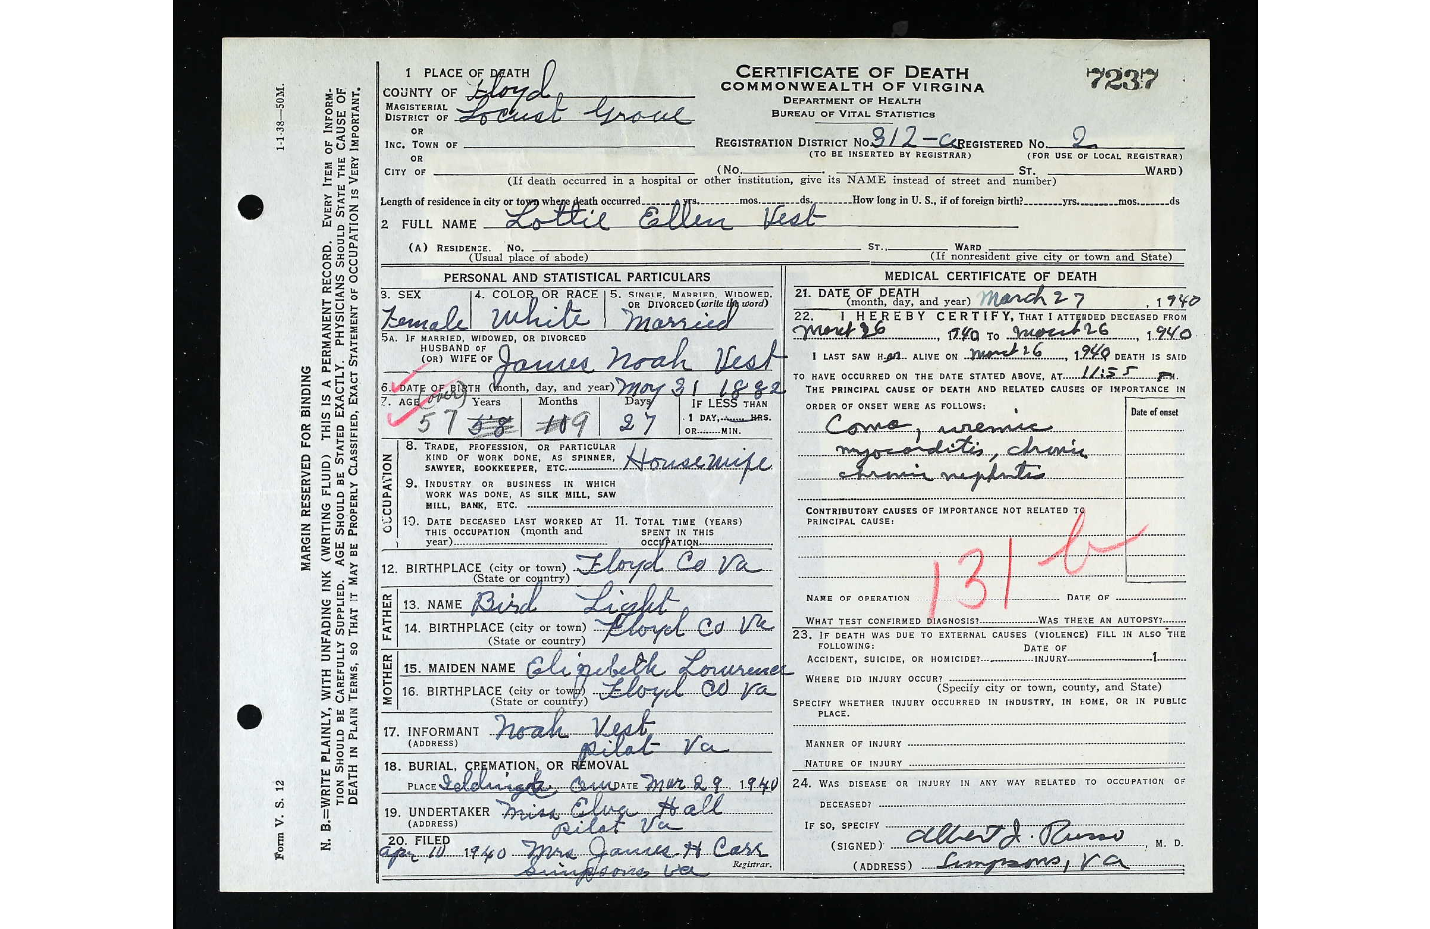 1 PLACE OF DEATH
COUNTY OF Floyd
MAGISTERIAL DISTRICT OF Locust Grove
OR
INC. TOWN OF
OR
CITY OF
CERTIFICATE OF DEATH
COMMONWEALTH OF VIRGINIA
DEPARTMENT OF HEALTH
BUREAU OF VITAL STATISTICS
7237
REGISTRATION DISTRICT No. 312-C REGISTERED No. 2
(TO BE INSERTED BY REGISTRAR) (FOR USE OF LOCAL REGISTRAR)
(No. ST. WARD)
(If death occurred in a hospital or other institution, give its NAME instead of street and number)
Length of residence in city or town where death occurred yrs. mos. ds. How long in U. S., if of foreign birth? yrs. mos. ds
2 FULL NAME Lottie Ellen Vest
(A) RESIDENCE. No. ST., WARD
(Usual place of abode) (If nonresident give city or town and State)
PERSONAL AND STATISTICAL PARTICULARS
3. SEX 4. COLOR OR RACE 5. SINGLE, MARRIED, WIDOWED,
OR DIVORCED (write the word)
Female White Married
5A. IF MARRIED, WIDOWED, OR DIVORCED
HUSBAND OF
(OR) WIFE OF James Noah Vest
6. DATE OF BIRTH (month, day, and year) May 31 1882
7. AGE (over) Years Months Days IF LESS THAN
57 58 9 27 1 DAY, HRS.
OR MIN.
OCCUPATION
8. TRADE, PROFESSION, OR PARTICULAR
KIND OF WORK DONE, AS SPINNER,
SAWYER, BOOKKEEPER, ETC. Housewife
9. INDUSTRY OR BUSINESS IN WHICH
WORK WAS DONE, AS SILK MILL, SAW
MILL, BANK, ETC.
10. DATE DECEASED LAST WORKED AT 11. TOTAL TIME (YEARS)
THIS OCCUPATION (month and SPENT IN THIS
year) OCCUPATION
12. BIRTHPLACE (city or town) Floyd Co Va
(State or country)
FATHER
13. NAME Bird Light
14. BIRTHPLACE (city or town) Floyd Co Va
(State or country)
MOTHER
15. MAIDEN NAME Elizabeth Lawrence
16. BIRTHPLACE (city or town) Floyd Co Va
(State or country)
17. INFORMANT Noah Vest
(ADDRESS) Pilot Va
18. BURIAL, CREMATION, OR REMOVAL
PLACE Cem DATE Mar 29, 1940
19. UNDERTAKER Miss Elva Hall
(ADDRESS) Pilot Va
20. FILED
Apr 10 1940 Mrs James H Carr
Registrar.
Simpsons Va
MEDICAL CERTIFICATE OF DEATH
21. DATE OF DEATH
(month, day, and year) March 27, 1940
22. I HEREBY CERTIFY, THAT I ATTENDED DECEASED FROM
March 26, 1940 TO March 26, 1940
I LAST SAW HER ALIVE ON March 26, 1940 DEATH IS SAID
TO HAVE OCCURRED ON THE DATE STATED ABOVE, AT 11:55 PM.
THE PRINCIPAL CAUSE OF DEATH AND RELATED CAUSES OF IMPORTANCE IN
ORDER OF ONSET WERE AS FOLLOWS: Date of onset
Coma, uremic
myocarditis, chronic
chronic nephritis
CONTRIBUTORY CAUSES OF IMPORTANCE NOT RELATED TO
PRINCIPAL CAUSE:
131 b
NAME OF OPERATION DATE OF
WHAT TEST CONFIRMED DIAGNOSIS? WAS THERE AN AUTOPSY?
23. IF DEATH WAS DUE TO EXTERNAL CAUSES (VIOLENCE) FILL IN ALSO THE
FOLLOWING: DATE OF
ACCIDENT, SUICIDE, OR HOMICIDE? INJURY 1
WHERE DID INJURY OCCUR?
(Specify city or town, county, and State)
SPECIFY WHETHER INJURY OCCURRED IN INDUSTRY, IN HOME, OR IN PUBLIC
PLACE.
MANNER OF INJURY
NATURE OF INJURY
24. WAS DISEASE OR INJURY IN ANY WAY RELATED TO OCCUPATION OF
DECEASED?
IF SO, SPECIFY
(SIGNED) Albert J. Russo, M. D.
(ADDRESS) Simpsons, Va
1-1-38—50M.
Form V. S. 12
MARGIN RESERVED FOR BINDING
N. B.—WRITE PLAINLY, WITH UNFADING INK (WRITING FLUID) THIS IS A PERMANENT RECORD. EVERY ITEM OF INFORM-
TION SHOULD BE CAREFULLY SUPPLIED. AGE SHOULD BE STATED EXACTLY. PHYSICIANS SHOULD STATE THE CAUSE OF
DEATH IN PLAIN TERMS, SO THAT IT MAY BE PROPERLY CLASSIFIED. EXACT STATEMENT OF OCCUPATION IS VERY IMPORTANT.